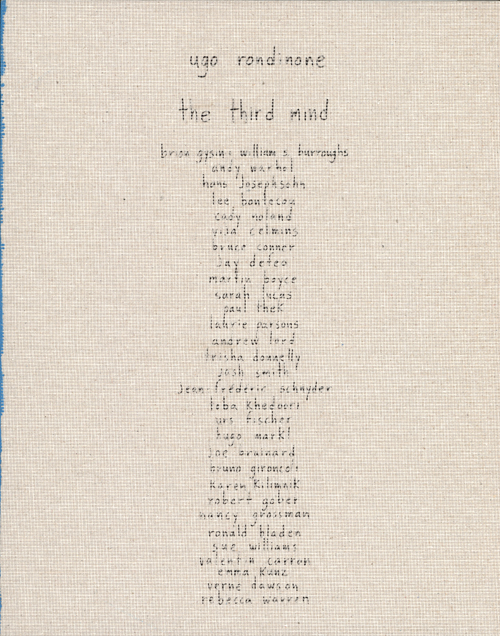 ugo rondinone
the third mind
brion gysin: william s burroughs
andy warhol
hans josephsohn
lee bontecou
cady noland
vija celmins
bruce conner
jay defeo
martin boyce
sarah lucas
paul thek
lahrie parsons
andrew lord
trisha donnelly
josh smith
jean-frédéric schnyder
toba khedoori
urs fischer
hugo markl
joe brainard
bruno gironcoli
karen kilimnik
robert gober
nancy grossman
ronald bladen
sue williams
valentin carron
emma kunz
verne dawson
rebecca warren